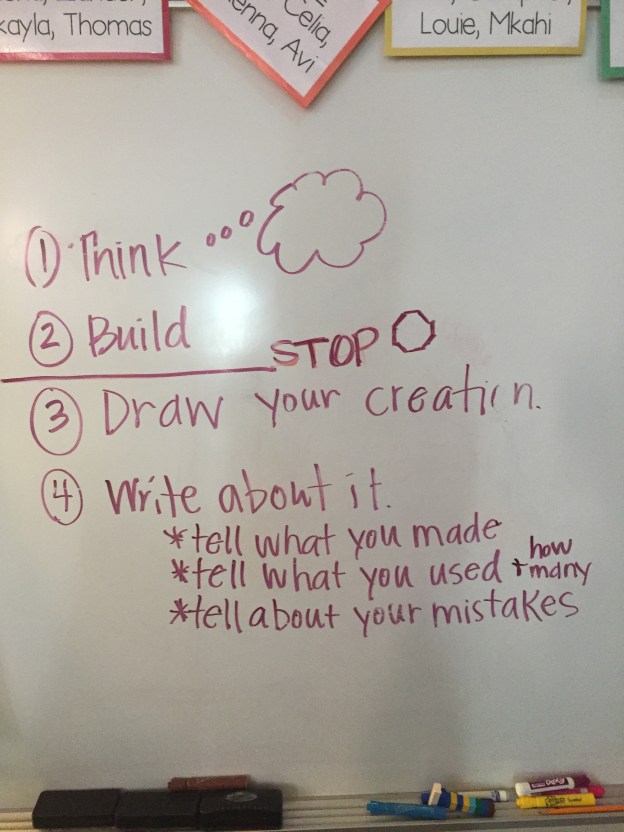 kayla, Thomas
Celia,
enna, Avi
Louie, Mkahi
① Think
② Build
STOP
③ Draw your creation.
④ Write about it.
*tell what you made
*tell what you used + how many
*tell about your mistakes